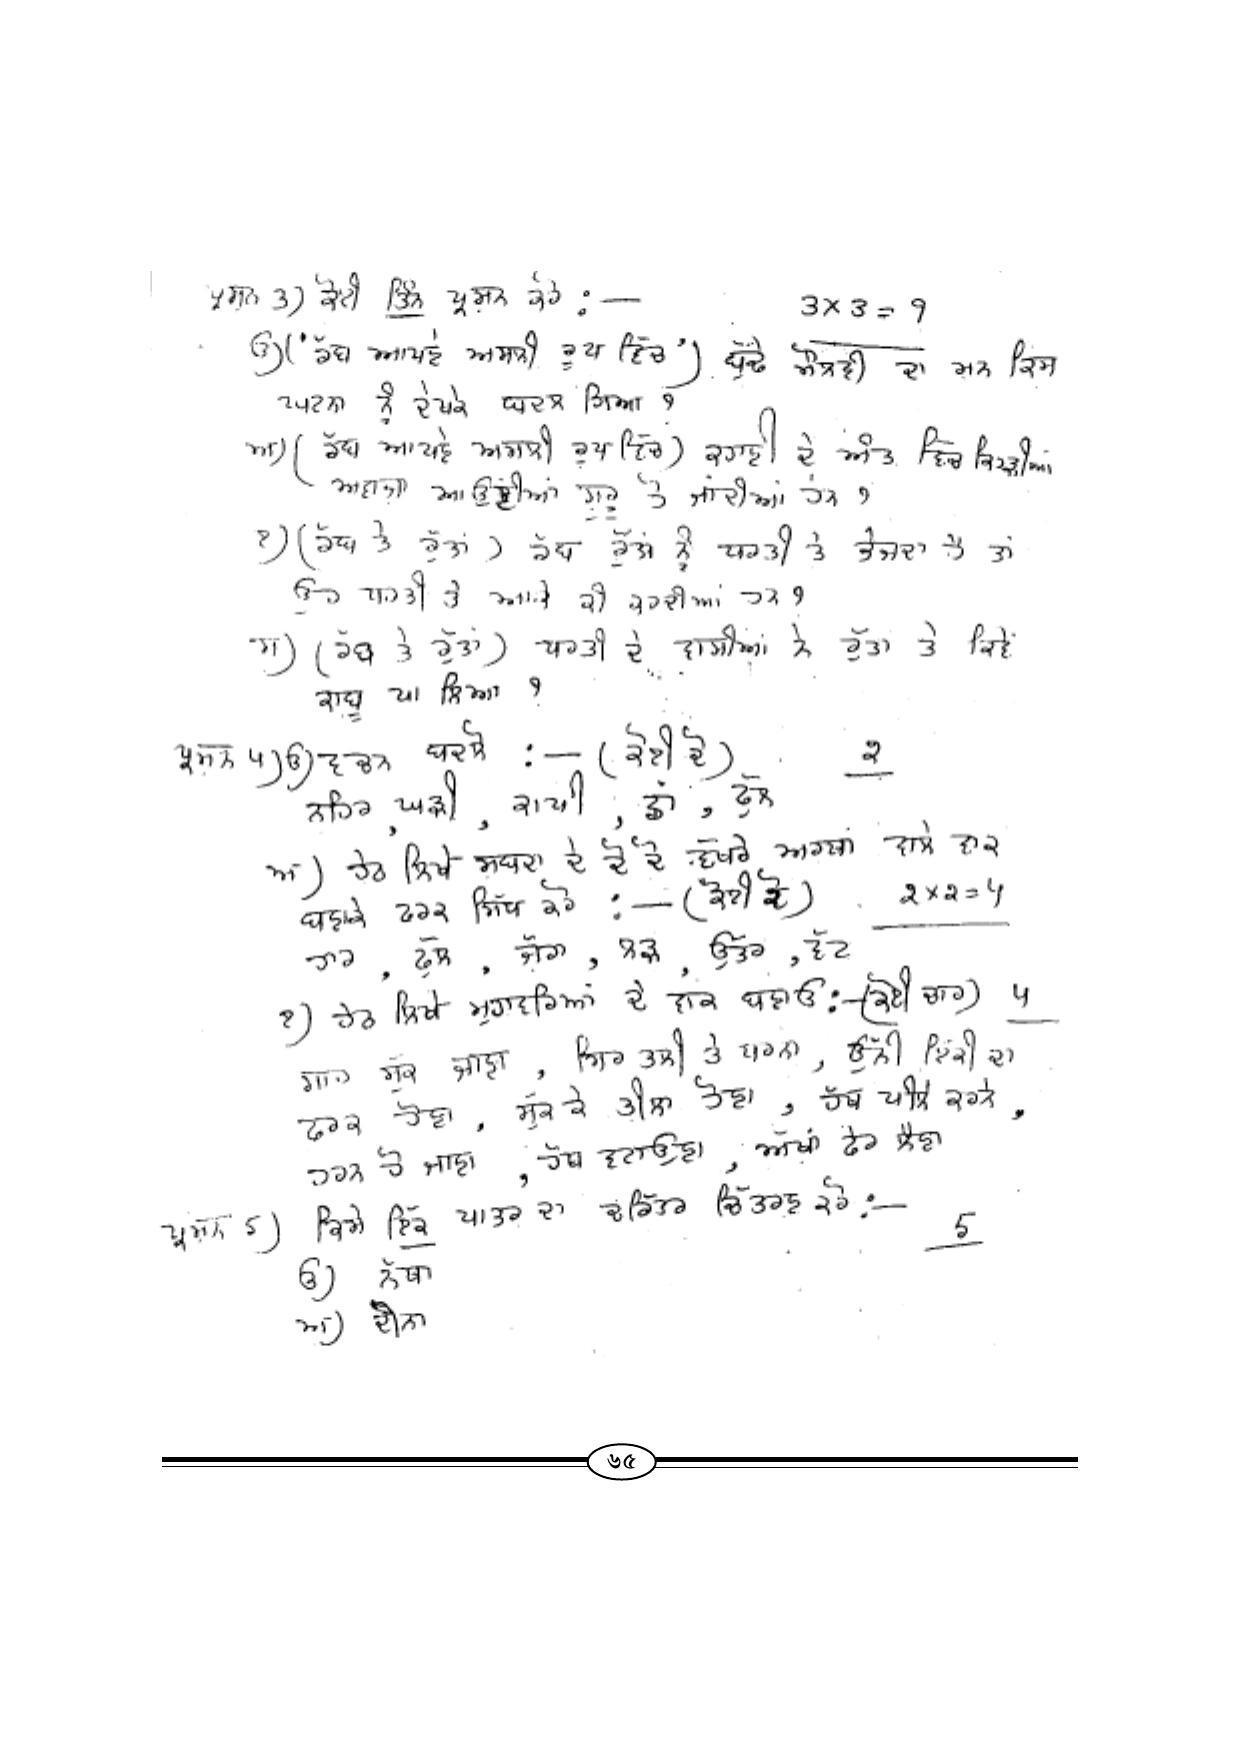 ਪ੍ਰਸ਼ਨ 3) ਕੋਈ ਤਿੰਨ ਪ੍ਰਸ਼ਨ ਕਰੋ :— 3×3=9
ੳ) ('ਰੱਬ ਆਪਣੇ ਅਸਲੀ ਰੂਪ ਵਿੱਚ') ਬੁੱਢੇ ਮੌਲਵੀ ਦਾ ਮਨ ਕਿਸ
ਘਟਨਾ ਨੂੰ ਦੇਖਕੇ ਬਦਲ ਗਿਆ ?
ਅ) (ਰੱਬ ਆਪਣੇ ਅਸਲੀ ਰੂਪ ਵਿੱਚ) ਕਹਾਣੀ ਦੇ ਅੰਤ ਵਿੱਚ ਕਿਹੜੀਆਂ
ਅਵਾਜ਼ਾਂ ਆਉਂਦੀਆਂ ਸ਼ੁਰੂ ਹੋ ਜਾਂਦੀਆਂ ਹਨ ?
ੲ) (ਰੱਬ ਤੇ ਰੁੱਤਾਂ) ਰੱਬ ਰੁੱਤਾਂ ਨੂੰ ਧਰਤੀ ਤੇ ਭੇਜਦਾ ਹੈ ਤਾਂ
ਉਹ ਧਰਤੀ ਤੇ ਆਕੇ ਕੀ ਕਰਦੀਆਂ ਹਨ ?
ਸ) (ਰੱਬ ਤੇ ਰੁੱਤਾਂ) ਧਰਤੀ ਦੇ ਵਾਸੀਆਂ ਨੇ ਰੁੱਤਾਂ ਤੇ ਕਿਵੇਂ
ਕਾਬੂ ਪਾ ਲਿਆ ?
ਪ੍ਰਸ਼ਨ 4) ੳ) ਵਚਨ ਬਦਲੋ :— (ਕੋਈ ਦੋ) 2
ਨਹਿਰ, ਘੜੀ, ਕਾਪੀ, ਛਾਂ, ਫੁੱਲ
ਅ) ਹੇਠ ਲਿਖੇ ਸ਼ਬਦਾਂ ਦੇ ਦੋ ਦੋ ਵੱਖਰੇ ਅਰਥਾਂ ਵਾਲੇ ਵਾਕ
ਬਣਾਕੇ ਫਰਕ ਸਿੱਧ ਕਰੋ :— (ਕੋਈ ਦੋ) 2×2=4
ਹਾਰ, ਫੁੱਲ, ਜੱਗ, ਲੜ, ਉੱਤਰ, ਵੱਟ
ੲ) ਹੇਠ ਲਿਖੇ ਮੁਹਾਵਰਿਆਂ ਦੇ ਵਾਕ ਬਣਾਓ :— (ਕੋਈ ਚਾਰ) 4
ਸਾਹ ਸੁੱਕ ਜਾਣਾ, ਸਿਰ ਤਲੀ ਤੇ ਧਰਨਾ, ਉੱਨੀ ਇੱਕੀ ਦਾ
ਫਰਕ ਹੋਣਾ, ਸੁੱਕ ਕੇ ਤੀਲਾ ਹੋਣਾ, ਹੱਥ ਪੀਲੇ ਕਰਨੇ,
ਹਰਨ ਹੋ ਜਾਣਾ, ਹੱਥ ਵਟਾਉਣਾ, ਅੱਖਾਂ ਫੇਰ ਲੈਣਾ
ਪ੍ਰਸ਼ਨ 5) ਕਿਸੇ ਇੱਕ ਪਾਤਰ ਦਾ ਚਰਿੱਤਰ ਚਿੱਤਰਣ ਕਰੋ :— 5
ੳ) ਨੱਥਾ
ਅ) ਦੀਨਾ
৬৫